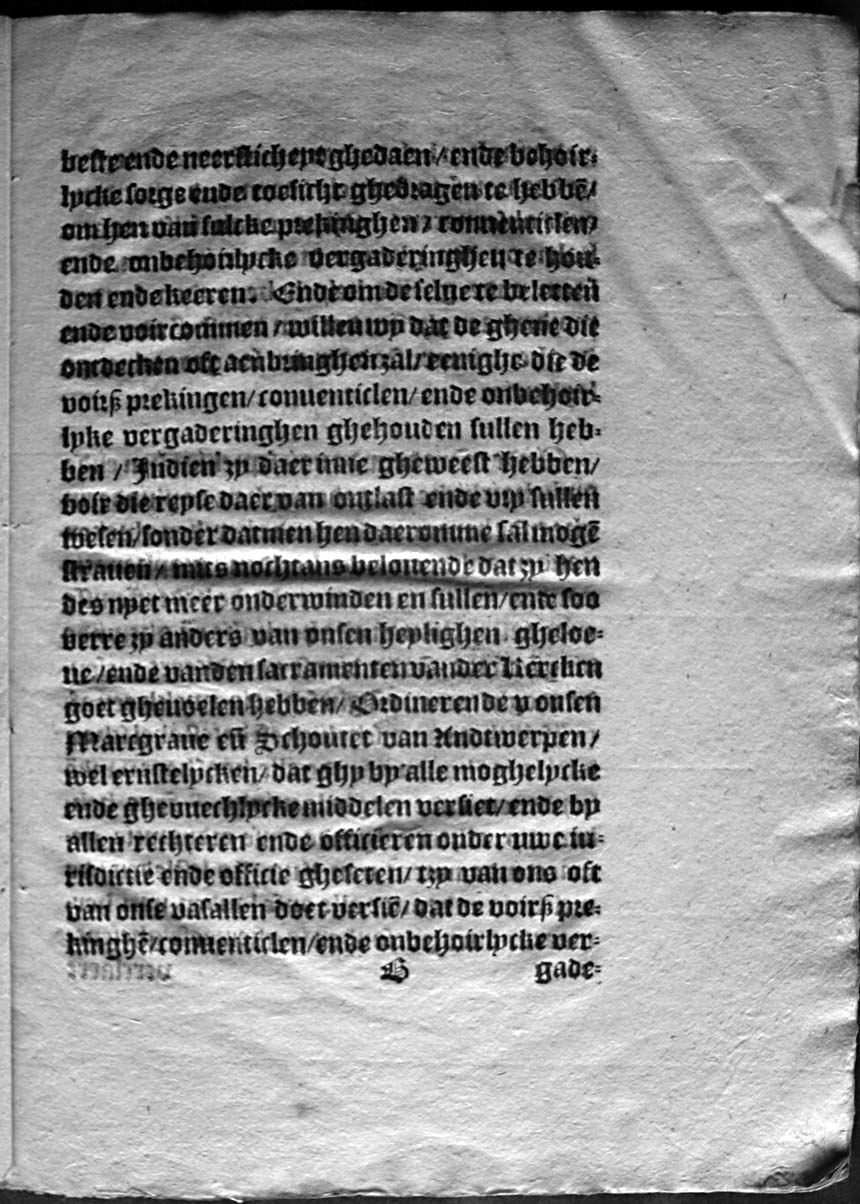 beste ende neerstichept ghedaen / ende behoir⸗
lycke sorge ende toesicht ghedragen te hebbē/
om hen van sulcke prekinghen / conuenticlen/
ende onbehoirlycke vergaderinghen te hou⸗
den ende keeren. Ende om de selue te beletten
ende voircommen / willen wy dat de ghene die
ontdecken oft aenbringhen zal/eenighe die de
voirß prekingen/conuenticlen/ende onbehoir⸗
lyke vergaderinghen ghehouden sullen heb⸗
ben / Indien zy daer inne gheweest hebben/
voir die reyse daer van ontlast ende vry sullen
wesen/sonder datmen hen daeromme sal mogē
straffen/ mits nochtans belouende dat zy hen
des nyet meer onderwinden en sullen/ende soo
verre zy anders van onsen heylighen gheloe⸗
ue/ende vanden sacramenten vander Kercken
goet gheuoelen hebben/ Ordinerende v onsen
Marcgraue eñ Schoutet van Andtwerpen/
wel ernstelycken/ dat ghy by alle moghelycke
ende gheuuechlycke middelen versiet/ende by
allen rechteren ende officieren onder uwe iu⸗
risdictie ende officie gheseten/ tzy van ons oft
van onse vasallen doet versiē/ dat de voirß pre⸗
kinghē/conuenticlen/ende onbehoirlycke ver⸗
B gade⸗